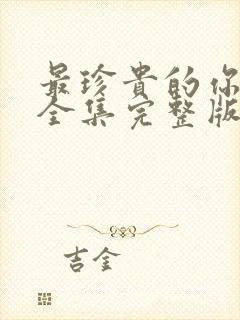 最珍貴的你
全集完整版
吉金